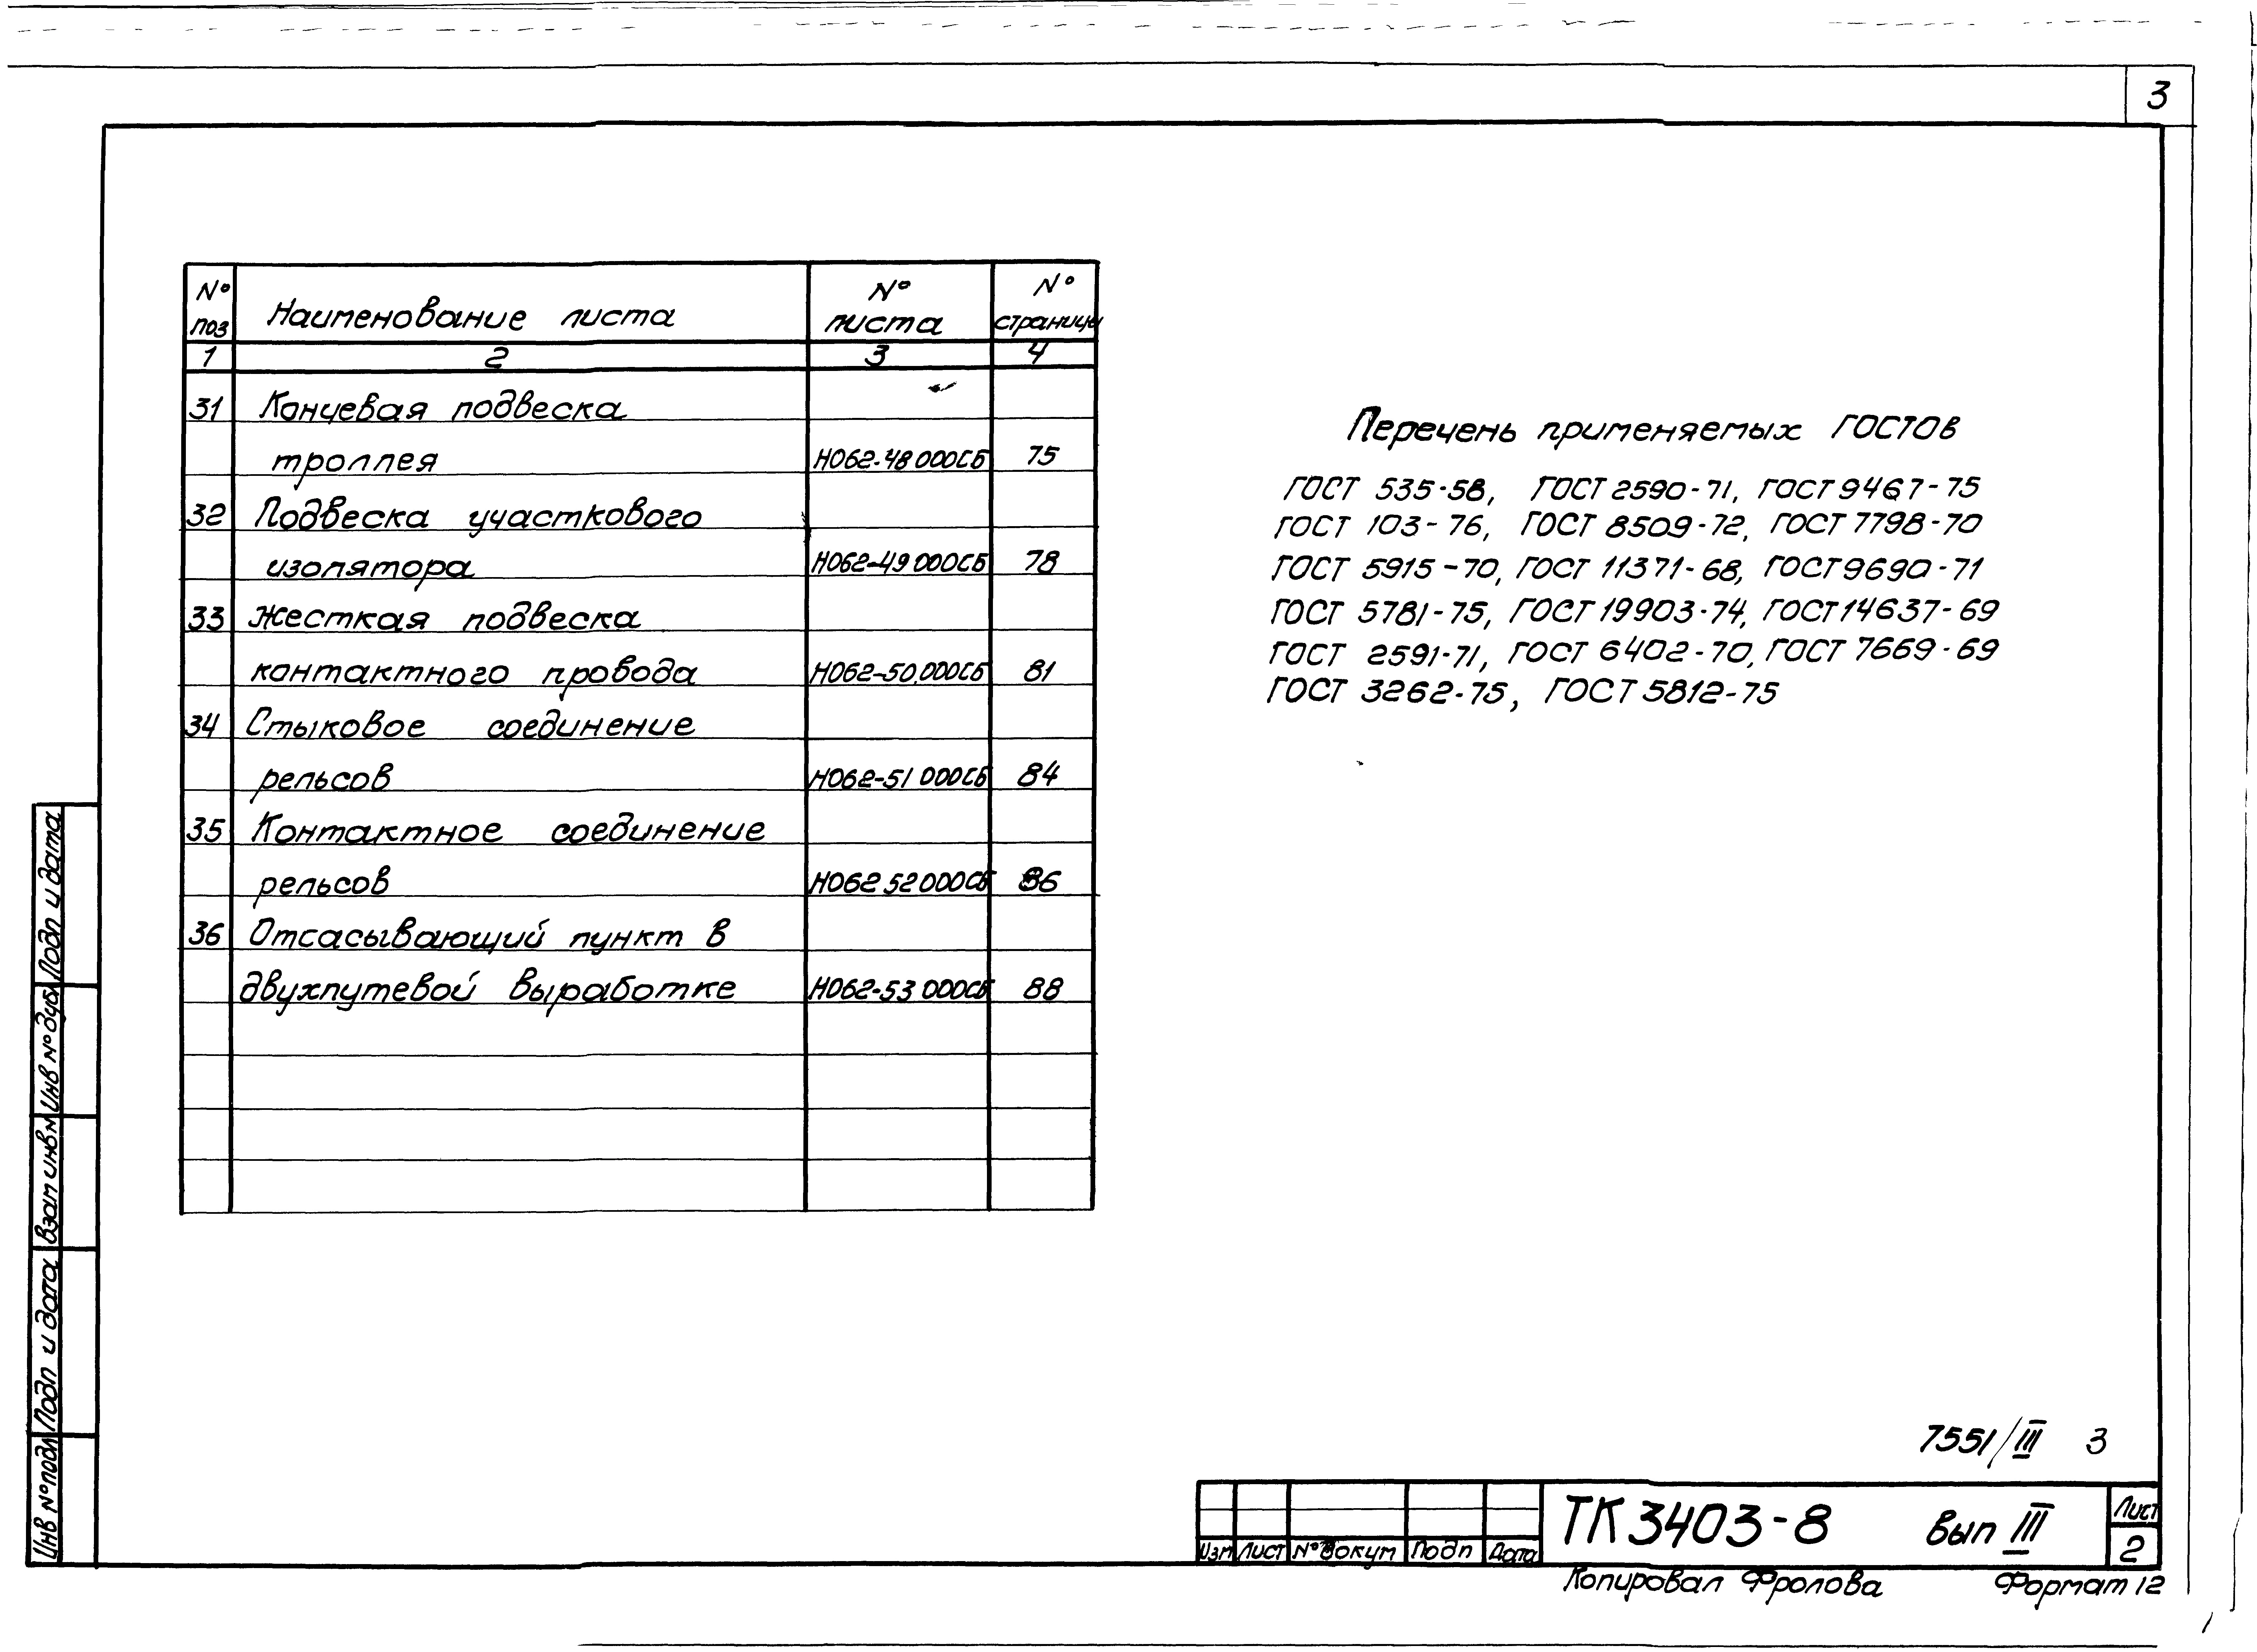 3
№ поз Наименование листа № листа № страницы
1 2 3 4
31 Концевая подвеска
троллея Н062-48 000СБ 75
32 Подвеска участкового
изолятора Н062-49 000СБ 78
33 Жесткая подвеска
контактного провода Н062-50.000СБ 81
34 Стыковое соединение
рельсов Н062-51 000СБ 84
35 Контактное соединение
рельсов Н062 52 000СБ 86
36 Отсасывающий пункт в
двухпутевой выработке Н062-53 000СБ 88
Перечень применяемых ГОСТОВ
ГОСТ 535-58, ГОСТ 2590-71, ГОСТ 9467-75
ГОСТ 103-76, ГОСТ 8509-72, ГОСТ 7798-70
ГОСТ 5915-70, ГОСТ 11371-68, ГОСТ 9690-71
ГОСТ 5781-75, ГОСТ 19903-74, ГОСТ 14637-69
ГОСТ 2591-71, ГОСТ 6402-70, ГОСТ 7669-69
ГОСТ 3262-75, ГОСТ 5812-75
Подп и дата
Инв № дубл
Взам инв N
Подп и дата
Инв № подл
7551/III 3
Изм Лист № докум Подп Дата
ТК 3403-8 вып III
Лист
2
Копировал Фролова Формат 12